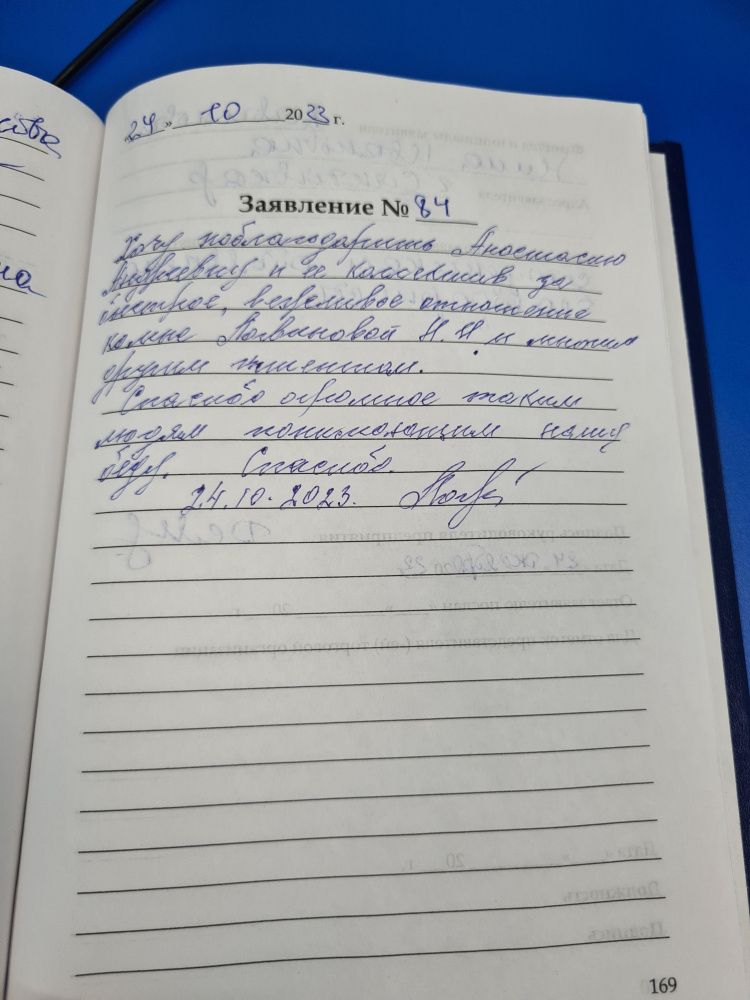 ства
на
"24" 10 2023 г.
Заявление № 84
Хочу поблагодарить Анастасию
Андреевну и ее коллектив за
быстрое, вежливое отношение
ко мне Н.И и многим
другим клиентам.
Спасибо огромное таким
людям понимающим нашу
беду. Спасибо.
24.10.2023.
169